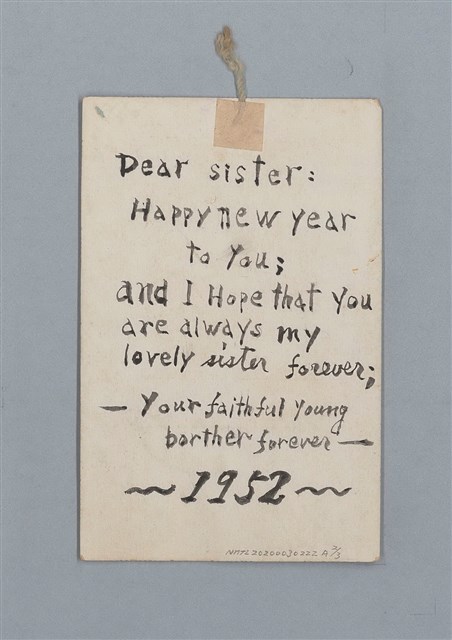 Dear sister:
Happy new year
to you;
and I Hope that you
are always my
lovely sister forever;
— Your faithful young
borther forever —
~ 1952 ~
NMTL20200030222 A 3/3